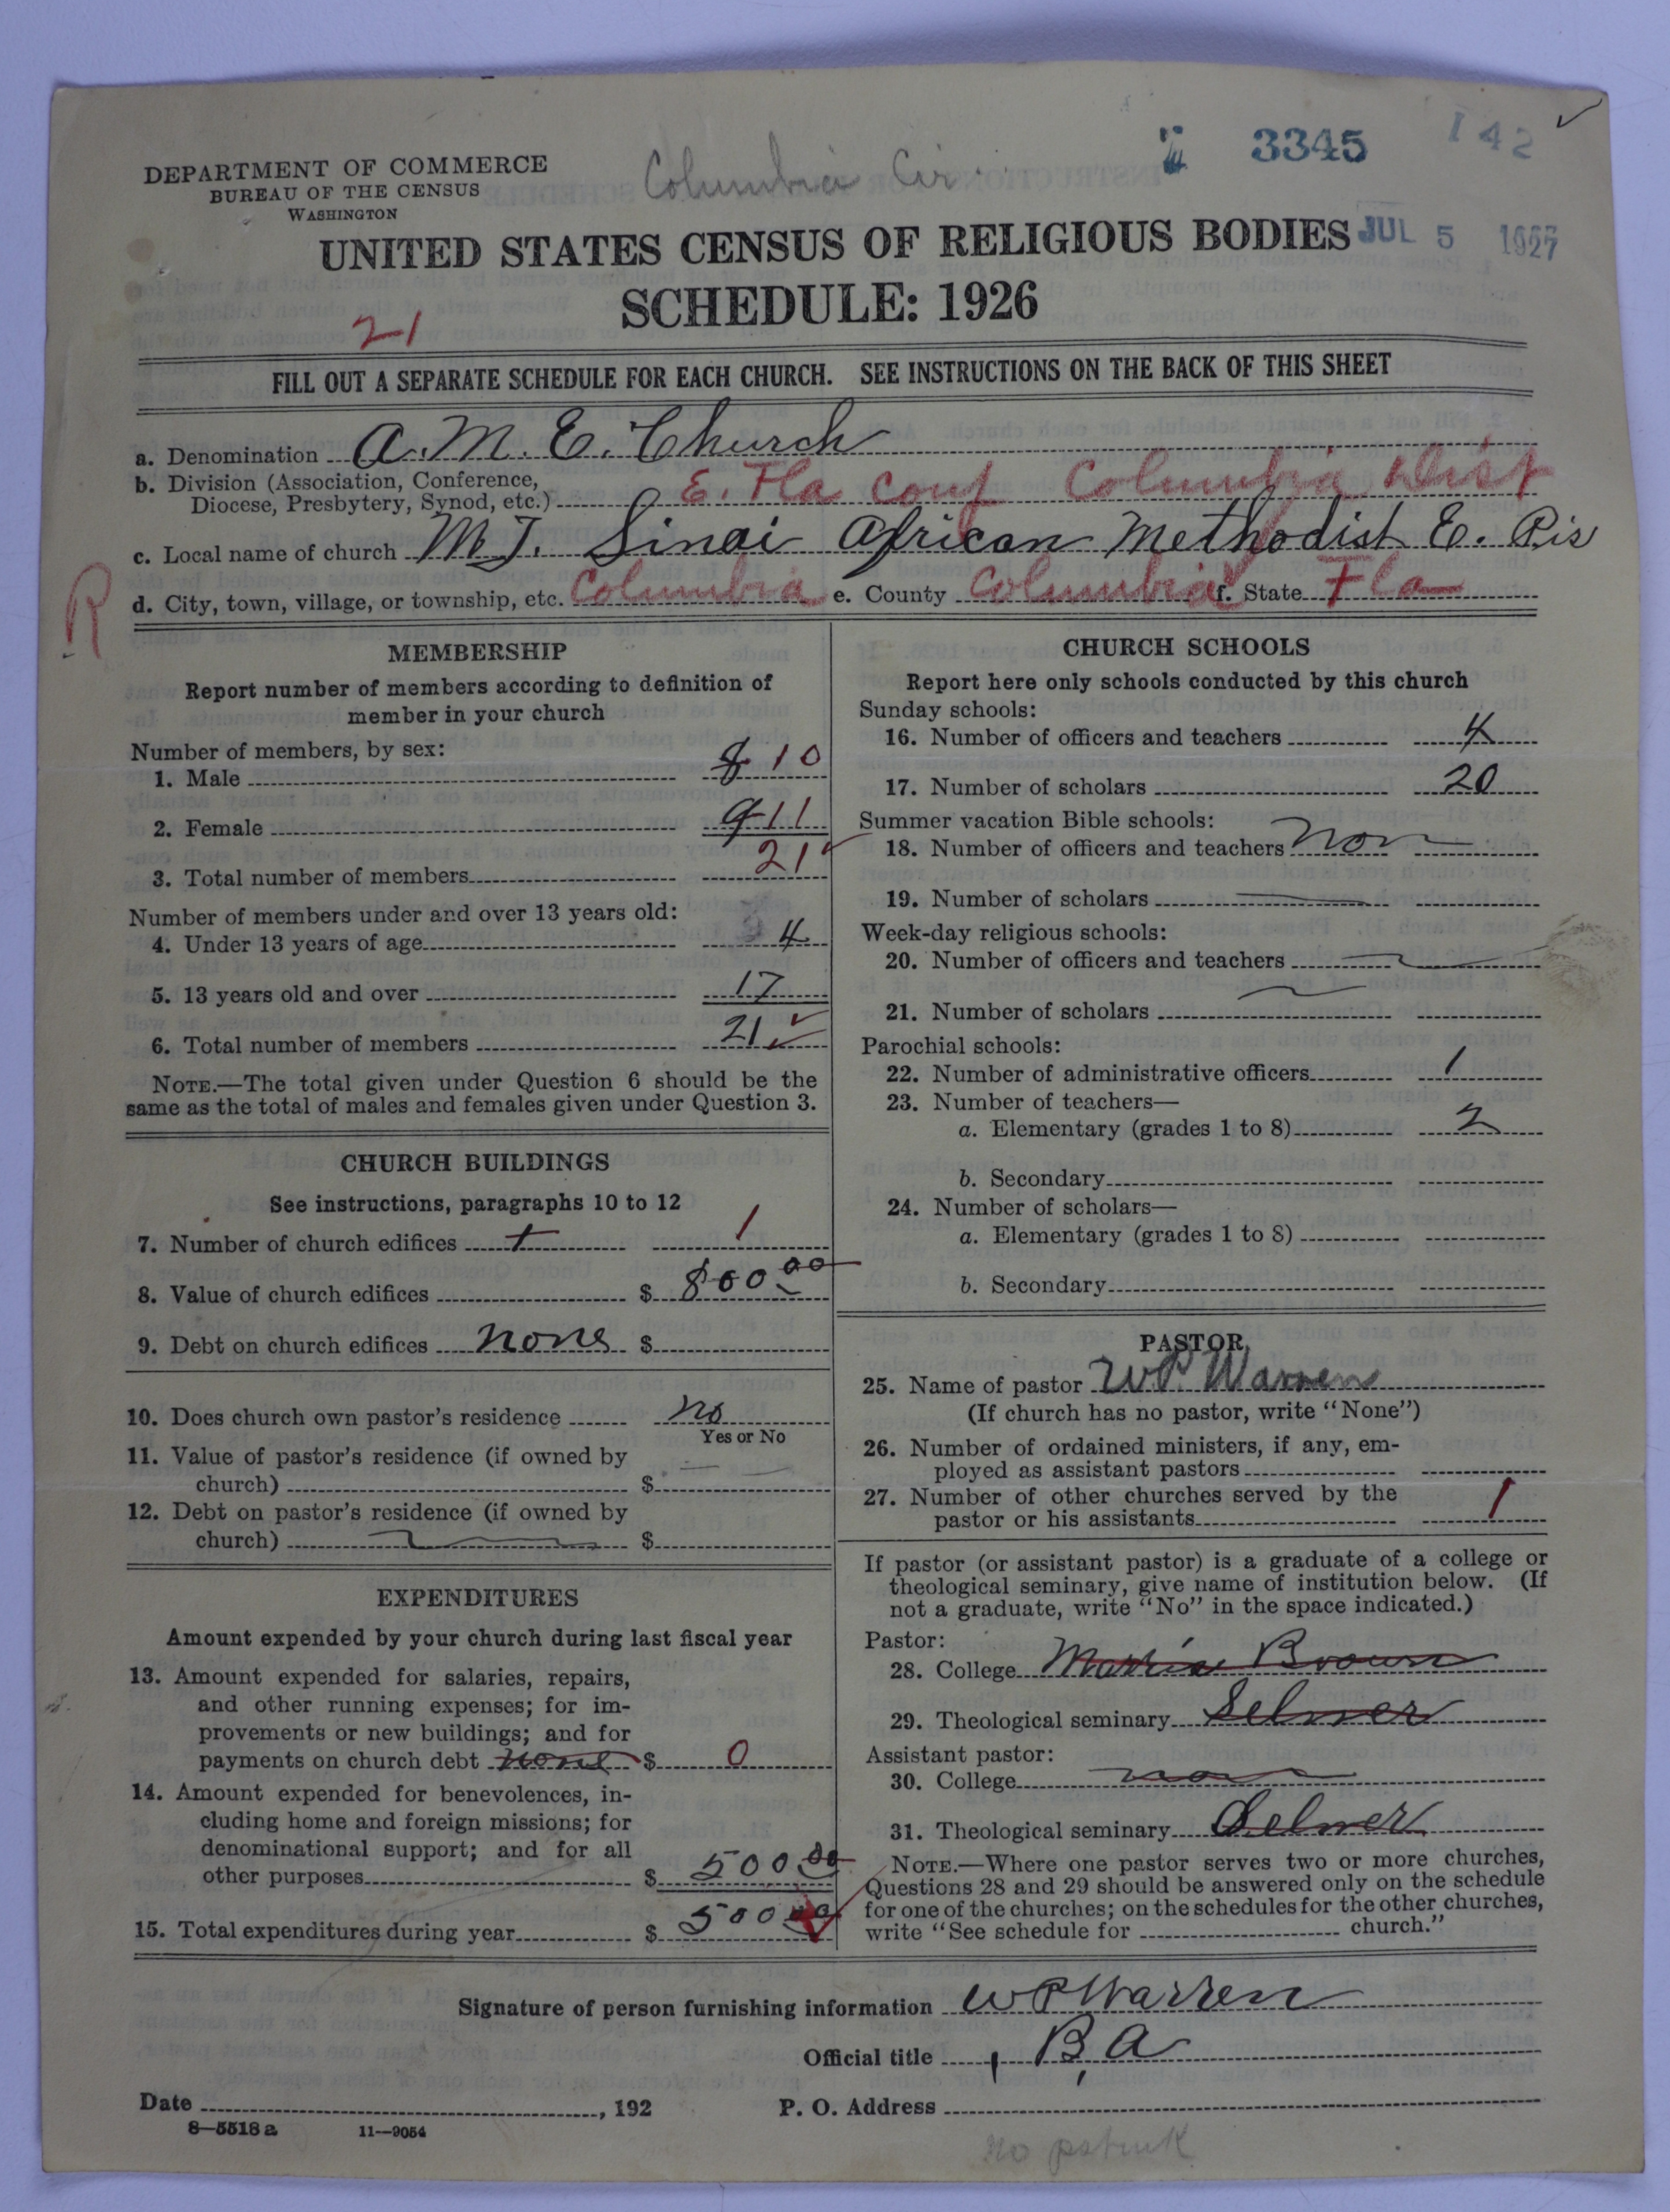 3345
142
DEPARTMENT OF COMMERCE
BUREAU OF THE CENSUS
WASHINGTON
Columbia Cir.
UNITED STATES CENSUS OF RELIGIOUS BODIES
JUL 5 1927
SCHEDULE: 1926
21
FILL OUT A SEPARATE SCHEDULE FOR EACH CHURCH. SEE INSTRUCTIONS ON THE BACK OF THIS SHEET
a. Denomination A.M.E. Church
b. Division (Association, Conference,
Diocese, Presbytery, Synod, etc.) E. Fla Conf Columbia Dist
c. Local name of church MT. Sinai African Methodist E. Pis
R
d. City, town, village, or township, etc. Columbia e. County Columbia f. State Fla
MEMBERSHIP
Report number of members according to definition of
member in your church
Number of members, by sex:
1. Male 8 10
2. Female 9 11
3. Total number of members 21
Number of members under and over 13 years old:
4. Under 13 years of age 4
5. 13 years old and over 17
6. Total number of members 21
NOTE.—The total given under Question 6 should be the
same as the total of males and females given under Question 3.
CHURCH BUILDINGS
See instructions, paragraphs 10 to 12
7. Number of church edifices 1 1
8. Value of church edifices $ 800.00
9. Debt on church edifices none $
10. Does church own pastor's residence no
Yes or No
11. Value of pastor's residence (if owned by
church) $
12. Debt on pastor's residence (if owned by
church) $
EXPENDITURES
Amount expended by your church during last fiscal year
13. Amount expended for salaries, repairs,
and other running expenses; for im-
provements or new buildings; and for
payments on church debt none $ 0
14. Amount expended for benevolences, in-
cluding home and foreign missions; for
denominational support; and for all
other purposes $ 500.00
15. Total expenditures during year $ 500.00
CHURCH SCHOOLS
Report here only schools conducted by this church
Sunday schools:
16. Number of officers and teachers 4
17. Number of scholars 20
Summer vacation Bible schools:
18. Number of officers and teachers non
19. Number of scholars
Week-day religious schools:
20. Number of officers and teachers
21. Number of scholars
Parochial schools:
22. Number of administrative officers 1
23. Number of teachers—
a. Elementary (grades 1 to 8) 2
b. Secondary
24. Number of scholars—
a. Elementary (grades 1 to 8)
b. Secondary
PASTOR
25. Name of pastor W.P. Warren
(If church has no pastor, write "None")
26. Number of ordained ministers, if any, em-
ployed as assistant pastors
27. Number of other churches served by the
pastor or his assistants 1
If pastor (or assistant pastor) is a graduate of a college or
theological seminary, give name of institution below. (If
not a graduate, write "No" in the space indicated.)
Pastor:
28. College Morris Brown
29. Theological seminary Selmer
Assistant pastor:
30. College non
31. Theological seminary Selmer
NOTE.—Where one pastor serves two or more churches,
Questions 28 and 29 should be answered only on the schedule
for one of the churches; on the schedules for the other churches,
write "See schedule for church."
Signature of person furnishing information W P Warren
Official title B, A
Date , 192
P. O. Address
8—5518a 11—9054